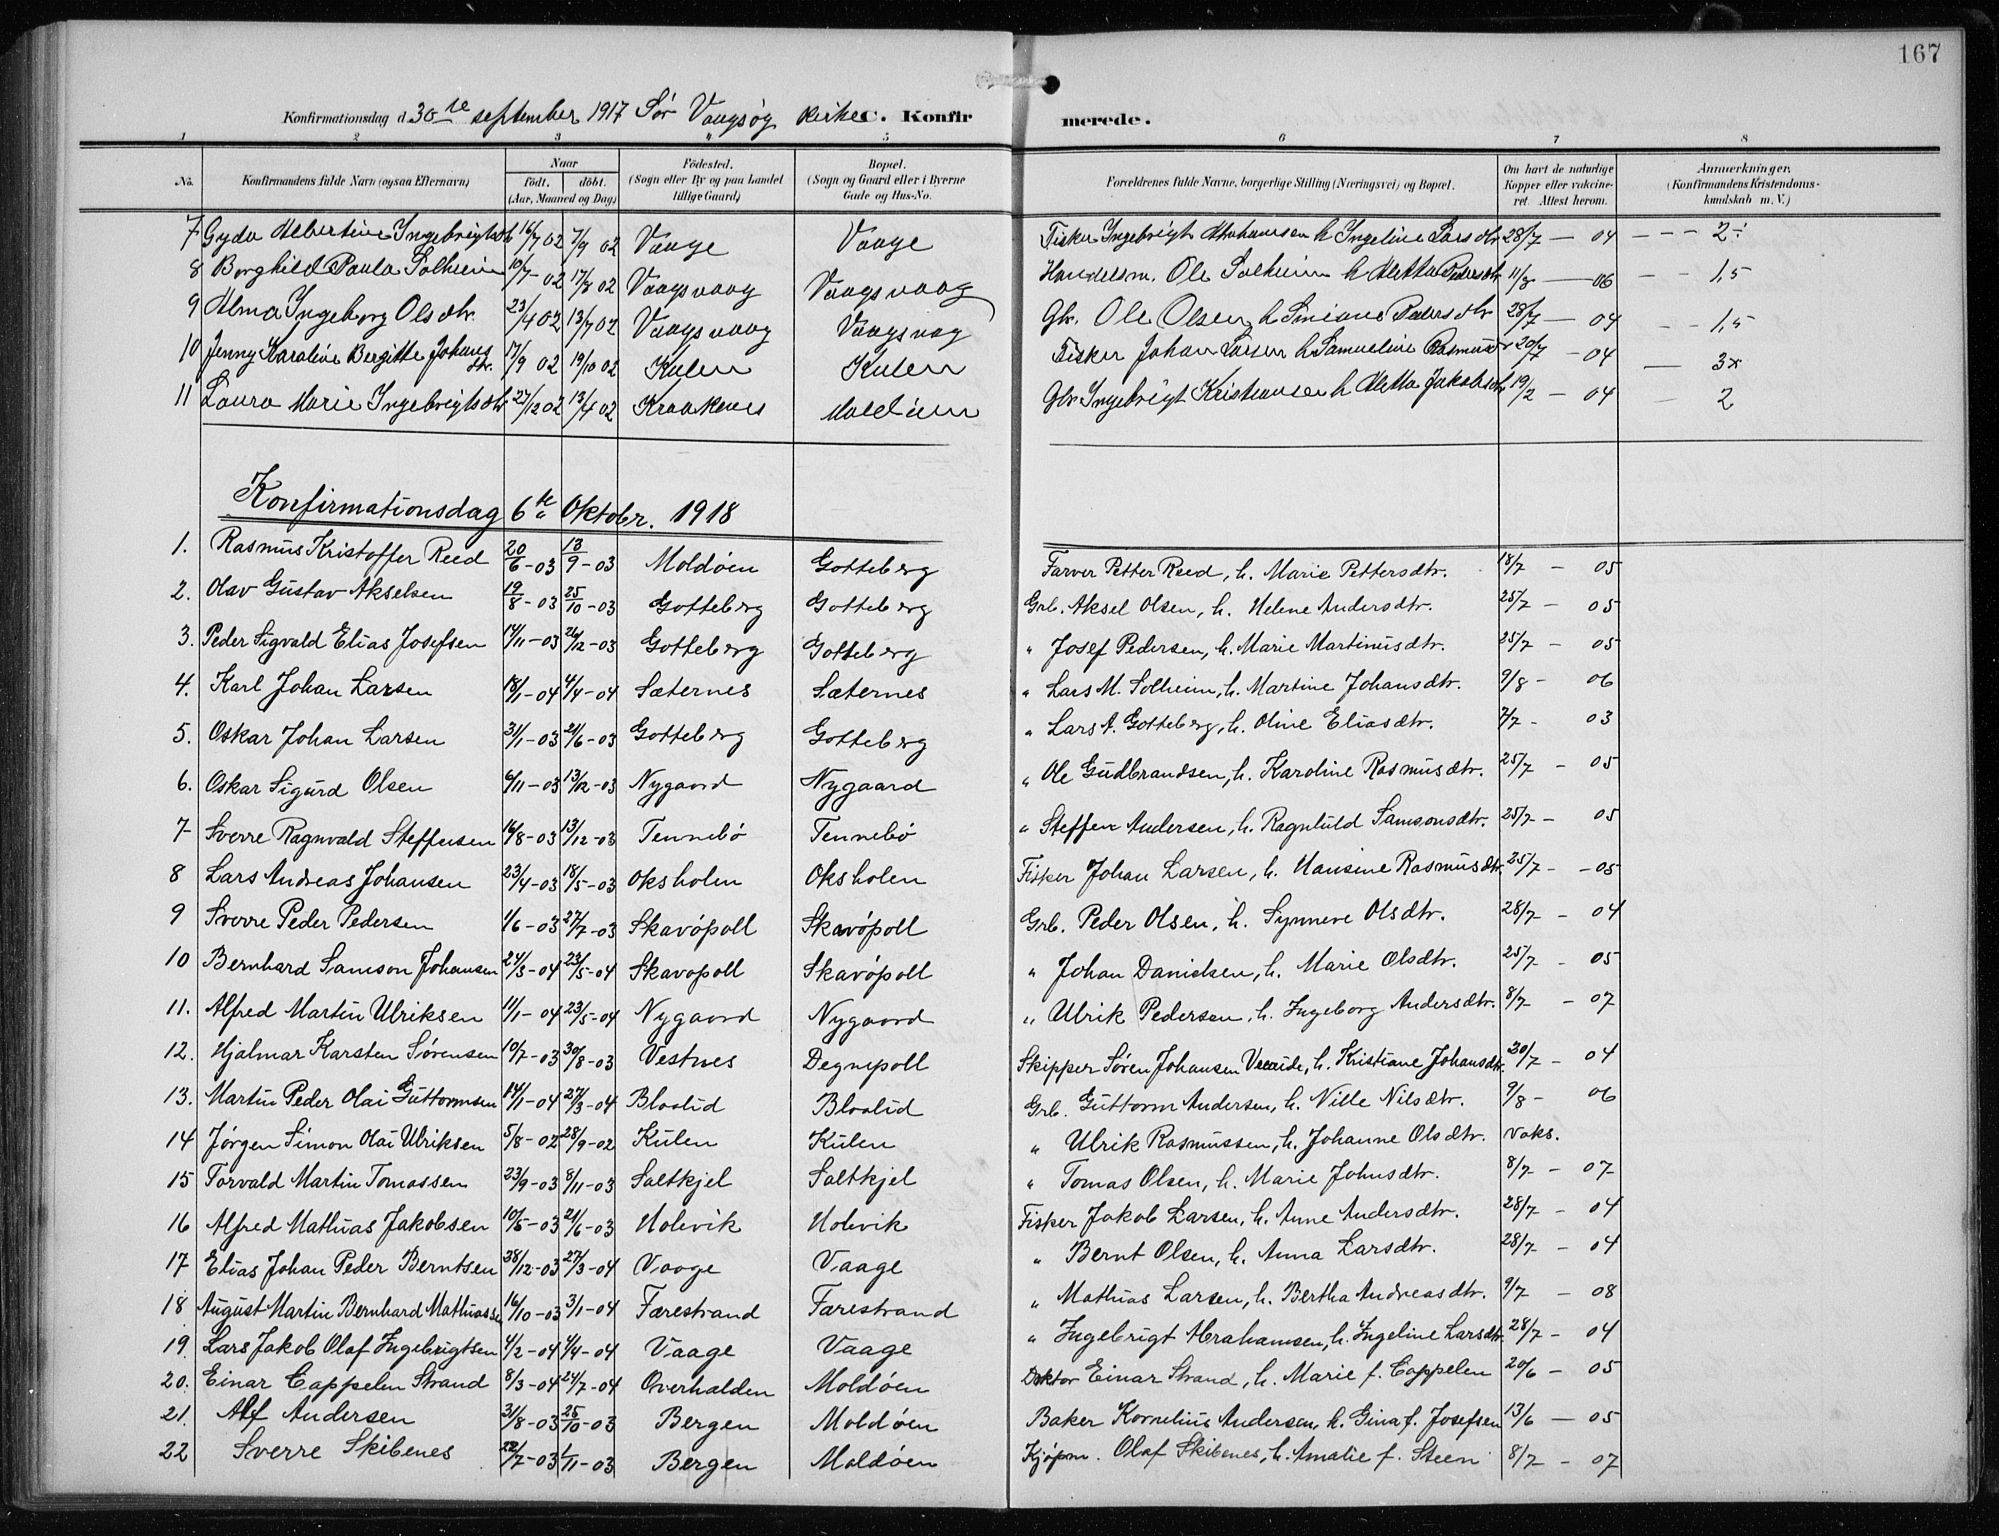 167
Konfirmationsdag d. 30te september 1917 Sør Vaagsøy Kirke C. Konfirmerede.
1 2 3 4 5 6 7 8
No. Konfirmandens fulde Navn (ogsaa Efternavn) Naar født. døbt. (Aar, Maaned og Dag) Fødested. (Sogn eller By og paa Landet tillige Gaard) Bopæl. (Sogn og Gaard eller i Byerne Gade og Hus-No. Forældrenes fulde Navne, borgerlige Stilling (Næringsvei) og Bopæl. Om havt de naturlige Kopper eller vakcineret. Attest herom. Anmerkninger. (Konfirmandens Kristendomskundskab m. V.)
7 Gyda Albertine Ingebrigtsdtr 16/7 02 7/9 02 Vaage Vaage Fisker Ingebrigt Abrahamsen h Ingeline Larsdtr 28/7 — 04 - - - 2÷
8 Borghild Paula Solheim 10/7 - 02 17/8 02 Vaagsvaag Vaagsvaag Handelsm. Ole Solheim h Metta Pedersdtr 11/8 — 06 - - 1,5
9 Alma Ingeborg Olsdtr. 23/4 02 13/7 02 Vaagsvaag Vaagsvag Gbr. Ole Olsen h Siniane Pedersdtr 28/7 — 04 - - 1,5
10 Jenny Karoline Bergitte Johansdtr. 17/9 02 19/10 02 Kulen Kulen Fisker Johan Larsen h Samueline Rasmusd 20/7 - 04 — 3x
11 Laura Marie Ingebrigtsdtr 27/12 02 13/4 02 Kraakenes Moldøen Gbr Ingebrigt Kristiansen h Metta Jakobsdtr 19/2 — 04 — 2
Konfirmationsdag 6te Oktobr. 1918
1. Rasmus Kristoffer Reed 20/6 - 03 13/9 - 03 Moldøen Gotteberg Farver Petter Reed, h. Marie Pettersdtr. 18/7 - 05
2. Olav Gustav Akselsen 19/8 - 03 25/10 - 03 Gotteberg Gotteberg Grb. Aksel Olsen, h. Helene Andersdtr. 25/7 - 05
3. Peder Sigvald Elias Josefsen 14/11 - 03 26/12 - 03 Gotteberg Gotteberg " Josef Pedersen, h. Marie Martinusdtr. 25/7 - 05
4. Karl Johan Larsen 18/1 - 04 4/4 - 04 Sæternes Sæternes " Lars M. Solheim, h. Martine Johansdtr. 9/8 - 06
5. Oskar Johan Larsen 31/1 - 03 21/6 - 03 Gotteberg Gotteberg " Lars A. Gotteberg, h. Oline Eliasdtr. 7/7 - 03
6. Oskar Sigurd Olsen 6/11 - 03 13/12 - 03 Nygaard Nygaard " Ole Gudbrandsen, h. Karoline Rasmusdtr. 25/7 - 05
7 Sverre Ragnvald Steffensen 16/8 - 03 13/12 - 03 Tennebø Tennebø " Steffen Andersen, h. Ragnhild Samsonsdtr. 25/7 - 05
8 Lars Andreas Johansen 23/4 - 03 18/5 - 03 Oksholen Oksholen Fisker Johan Larsen, h. Hansine Rasmusdtr. 25/7 - - 05
9 Sverre Peder Pedersen 1/6 - 03 27/7 - 03 Skavøpoll Skavøpoll Grb. Peder Olsen, h. Synneve Olsdtr. 28/7 - 04
10 Bernhard Samson Johansen 24/3 - 04 23/5 - 04 Skavøpoll Skavøpoll " Johan Danielsen, h. Marie Olsdtr. 25/7 - 05
11. Alfred Martin Ulriksen 11/1 - 04 23/5 - 04 Nygaard Nygaard " Ulrik Pedersen, h. Ingeborg Andersdtr. 8/7 - 07
12. Hjalmar Karsten Sørensen 10/7 - 03 30/8 - 03 Vestnes Degnepoll Skipper Søren Johansen, h. Kristiane Johansdtr. 30/7 - 04
13. Martin Peder Olai Guttormsen 14/1 - 04 27/3 - 04 Blaalid Blaalid Grb. Guttorm Andersen, h. Nille Nilsdtr. 9/8 - 06
14 Jørgen Simon Olai Ulriksen 5/8 - 02 28/9 - 02 Kulen Kulen " Ulrik Rasmussen, h. Johanne Olsdtr. Vaks.
15 Torvald Martin Tomassen 23/9 - 03 8/11 - 03 Saltkjel Saltkjel " Tomas Olsen, h. Marie Johnsdtr. 8/7 - 07
16 Alfred Mathias Jakobsen 10/5 - 03 21/6 - 03 Holevik Holevik Fisker Jakob Larsen, h. Anne Andersdtr. 28/7 - 04
17 Elias Johan Peder Berntsen 28/12 - 03 27/3 - 04 Vaage Vaage " Bernt Olsen, h. Anna Larsdtr. 28/7 - 04
18 August Martin Bernhard Mathiassen 16/10 - 03 3/1 - 04 Færestrand Færestrand " Mathias Larsen, h. Bertha Andreasdtr. 9/7 - 08
19. Lars Jakob Olaf Ingebrigtsen 4/2 - 04 4/4 - 04 Vaage Vaage " Ingebrigt Abrahamsen, h. Ingeline Larsdtr. 28/7 - 04
20. Einar Cappelen Strand 8/3 - 04 24/7 - 04 Overhalden Moldøen Doktor Einar Strand, h. Marie f. Cappelen 20/6 - 05
21. Alf Andersen 31/8 - 03 25/10 - 03 Bergen Moldøen Baker Kornelius Andersen, h. Gina f. Josefsen 13/6 - 05
22 Sverre Skibenes 22/7 - 03 1/11 - 03 Bergen Moldøen Kjøpm. Olaf Skibenes, h. Amalie f. Steen 8/7 - 07